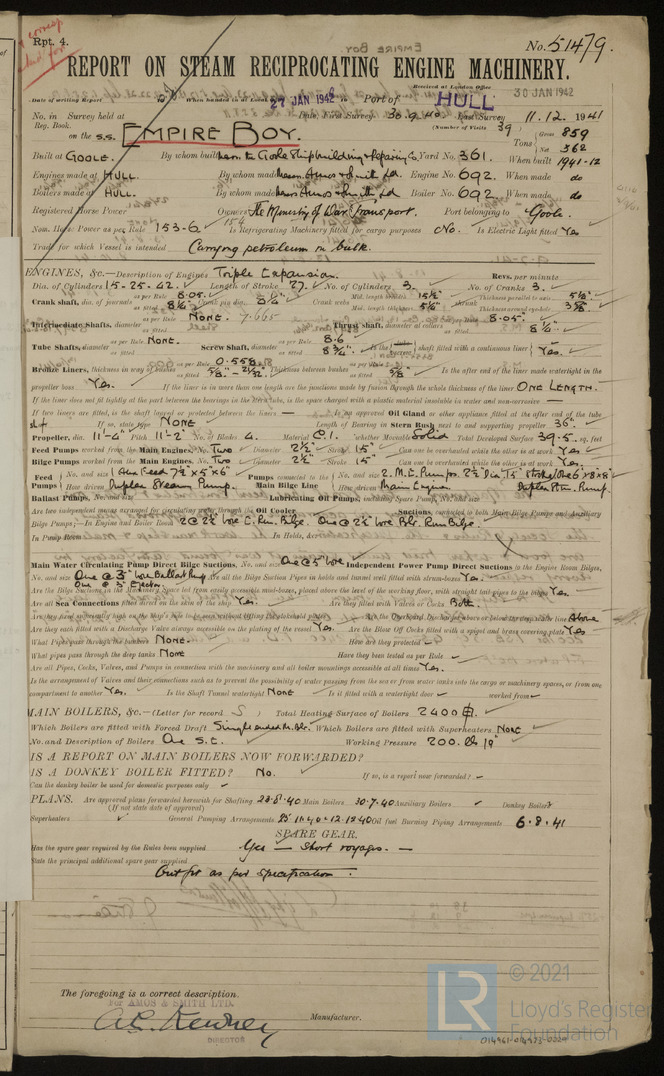 Rpt. 4.
EMPIRE BOY
No. 51479.
REPORT ON STEAM RECIPROCATING ENGINE MACHINERY.
Received at London Office 30 JAN 1942
Date of writing Report 19 When handed in at Local Office 27 JAN 1942 Port of HULL
No. in Survey held at Date, First Survey 30.9.40 Last Survey 11.12.1941
Reg. Book. (Number of Visits 39)
on the s.s. EMPIRE BOY. Tons Gross 859 Net 362
Built at GOOLE. By whom built Yard No. 361. When built 1941-12
Engines made at HULL. By whom made Messrs Amos & Smith Ltd. Engine No. 692. When made do
Boilers made at HULL. By whom made Messrs Amos & Smith Ltd Boiler No. 692. When made do
Registered Horse Power Owners The Ministry of War Transport. Port belonging to Goole.
Nom. Horse Power as per Rule 153.6 154 Is Refrigerating Machinery fitted for cargo purposes No. Is Electric Light fitted Yes
Trade for which Vessel is intended Carrying petroleum in bulk.
ENGINES, &c.—Description of Engines Triple Expansion. Revs. per minute
Dia. of Cylinders 15-25-42. Length of Stroke 27. No. of Cylinders 3. No. of Cranks 3.
Crank shaft, dia. of journals as per Rule 8.05. as fitted 8¼" Crank pin dia. 8¼" Crank webs Mid. length breadth 15½" Mid. length thickness 5⅛" shrunk Thickness parallel to axis 5⅛" Thickness around eyehole
Intermediate Shafts, diameter as per Rule NONE. 7.665 as fitted Thrust shaft, diameter at collars as per Rule 8.05" as fitted 8¼"
Tube Shafts, diameter as per Rule NONE. as fitted Screw Shaft, diameter as per Rule 8.6 as fitted 8¾" Is the shaft fitted with a continuous liner Yes.
Bronze Liners, thickness in way of bushes as per Rule 0.558 as fitted ⅝" - 21/32" Thickness between bushes as per Rule as fitted Is the after end of the liner made watertight in the
propeller boss Yes. If the liner is in more than one length are the junctions made by fusion through the whole thickness of the liner ONE LENGTH.
If the liner does not fit tightly at the part between the bearings in the stern tube, is the space charged with a plastic material insoluble in water and non-corrosive —
If two liners are fitted, is the shaft lapped or protected between the liners — Is an approved Oil Gland or other appliance fitted at the after end of the tube
shaft NONE If so, state type Length of Bearing in Stern Bush next to and supporting propeller 36"
Propeller, dia. 11'-4" Pitch 11'-2" No. of Blades 4. Material C.I. whether Moveable Solid Total Developed Surface 39.5 sq. feet
Feed Pumps worked from the Main Engines, No. Two Diameter 2½" Stroke 15" Can one be overhauled while the other is at work Yes.
Bilge Pumps worked from the Main Engines, No. Two Diameter 2½" Stroke 15" Can one be overhauled while the other is at work Yes.
Feed Pumps No. and size How driven Duplex Steam Pump. Pumps connected to the Main Bilge Line No. and size How driven Main Engine Duplex Stm. Pump.
Ballast Pumps, No. and size Lubricating Oil Pumps, including Spare Pump, No. and size
Are two independent means arranged for circulating water through the Oil Cooler Suctions, connected to both Main Bilge Pumps and Auxiliary
Bilge Pumps;—In Engine and Boiler Room
In Pump Room In Holds, &c.
Main Water Circulating Pump Direct Bilge Suctions, No. and size One @ 5" bore Independent Power Pump Direct Suctions to the Engine Room Bilges,
No. and size One @ 3" bore Ballast Pump One @ 3" Ejector. Are all the Bilge Suction Pipes in holds and tunnel well fitted with strum-boxes Yes.
Are the Bilge Suctions in the Machinery Space led from easily accessible mud-boxes, placed above the level of the working floor, with straight tail pipes to the bilges Yes.
Are all Sea Connections fitted direct on the skin of the ship Yes. Are they fitted with Valves or Cocks Both.
Are they fixed sufficiently high on the ship's side to be seen without lifting the stokehold plates Are the Overboard Discharges above or below the deep water line Above
Are they each fitted with a Discharge Valve always accessible on the plating of the vessel Yes. Are the Blow Off Cocks fitted with a spigot and brass covering plate Yes
What Pipes pass through the bunkers NONE. How are they protected
What pipes pass through the deep tanks NONE Have they been tested as per Rule
Are all Pipes, Cocks, Valves, and Pumps in connection with the machinery and all boiler mountings accessible at all times Yes.
Is the arrangement of Valves and their connections such as to prevent the possibility of water passing from the sea or from water tanks into the cargo or machinery spaces, or from one
compartment to another Yes. Is the Shaft Tunnel watertight NONE Is it fitted with a watertight door worked from
MAIN BOILERS, &c.—(Letter for record S) Total Heating Surface of Boilers 2400
Which Boilers are fitted with Forced Draft Single ended M. Blr. Which Boilers are fitted with Superheaters NONE
No. and Description of Boilers One S.E. Working Pressure 200. lb □"
IS A REPORT ON MAIN BOILERS NOW FORWARDED?
IS A DONKEY BOILER FITTED? No. If so, is a report now forwarded?
Can the donkey boiler be used for domestic purposes only
PLANS. Are approved plans forwarded herewith for Shafting 23.8.40 Main Boilers 30.7.40 Auxiliary Boilers Donkey Boilers
(If not state date of approval)
Superheaters General Pumping Arrangements 25.11.40 - 12.12.40 Oil fuel Burning Piping Arrangements 6.8.41
SPARE GEAR.
Has the spare gear required by the Rules been supplied Yes — short voyages. —
State the principal additional spare gear supplied
Outfit as per specification.
The foregoing is a correct description.
For AMOS & SMITH LTD.
Manufacturer.
DIRECTOR
LR © 2021
Lloyd's Register
Foundation
014961-014973-0229